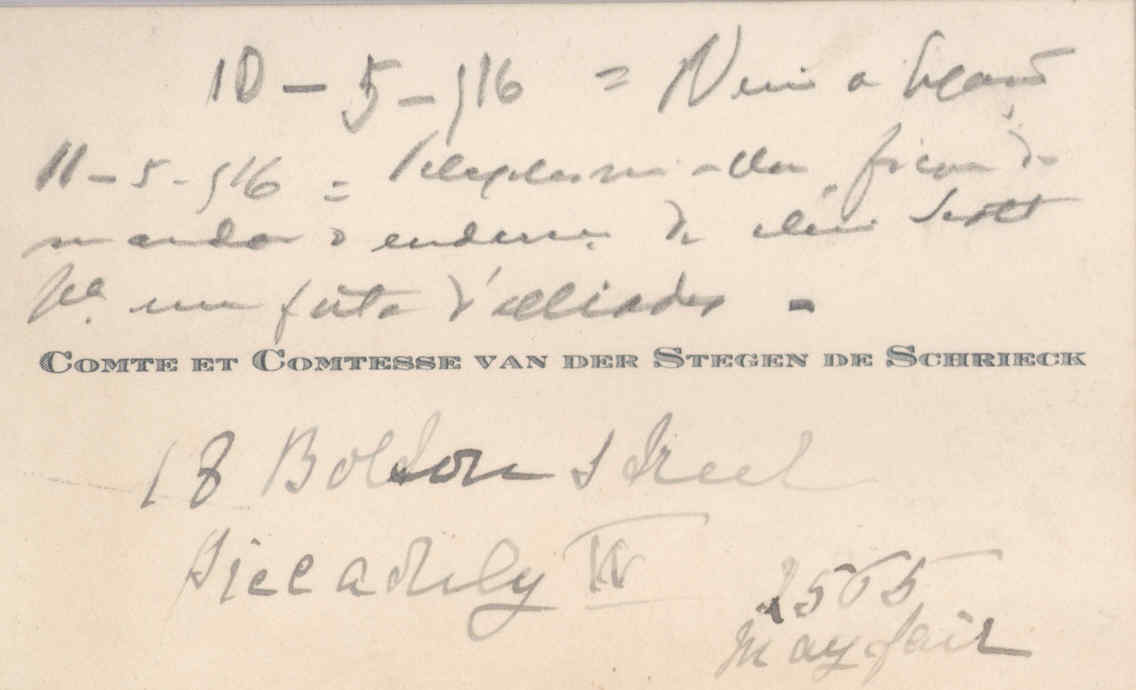 10 – 5 – 916 = Veiu a Legação
11 – 5 – 916 = ella ficou de
mandar o endereço de Scott
Pª uma festa d'alliados –
COMTE ET COMTESSE VAN DER STEGEN DE SCHRIECK
18 Bolton Street
Piccadilly W
2565
Mayfair